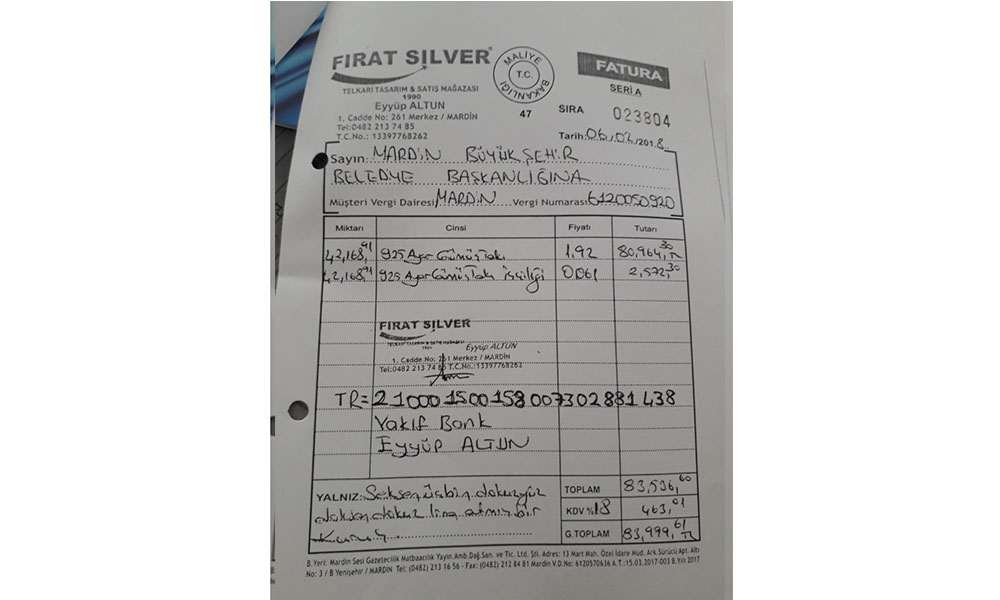 FIRAT SILVER
TELKARİ TASARIM & SATIŞ MAĞAZASI
1990
Eyyüp ALTUN
1. Cadde No: 261 Merkez / MARDİN
Tel:0482 213 74 85
T.C.No.: 13397768262
MALİYE BAKANLIĞI
T.C.
47
FATURA
SERİ A
SIRA 023804
Tarih: 06/02/2018
Sayın: MARDİN BÜYÜKŞEHİR
BELEDİYE BAŞKANLIĞINA
Müşteri Vergi Dairesi MARDİN Vergi Numarası 6120050920
Miktarı Cinsi Fiyatı Tutarı
42,168,91 925 Ayar Gümüş Takı 1,92 80,964,30 TL
42,168,91 925 Ayar Gümüş Takı işçiliği 0.061 2,572,30
FIRAT SILVER
TELKARİ TASARIM & SATIŞ MAĞAZASI
Eyyüp ALTUN
1. Cadde No: 261 Merkez / MARDİN
Tel:0482 213 74 85 T.C.No.: 13397768262
TR= 21000 1500158007302881438
Vakıf Bank
Eyyüp ALTUN
YALNIZ: Seksenüçbin dokuzyüz
doksan dokuz lira atmış bir
Kuruş
TOPLAM 83,536,60
KDV %18 463,01
G.TOPLAM 83,999,61 TL
B.Yeri: Mardin Sesi Gazetecilik Matbaacılık Yayın.Amb.Dağ.San. ve Tic. Ltd. Şti. Adres: 13 Mart Mah. Özel İdare Müd. Ark.Sürücü Apt. Altı
No: 3 / B Yenişehir / MARDİN Tel: (0482) 213 16 56 - Fax: (0482) 212 84 81 Mardin V.D.No: 6120570636 A.T.:15.03.2017-003 B.Yılı 2017